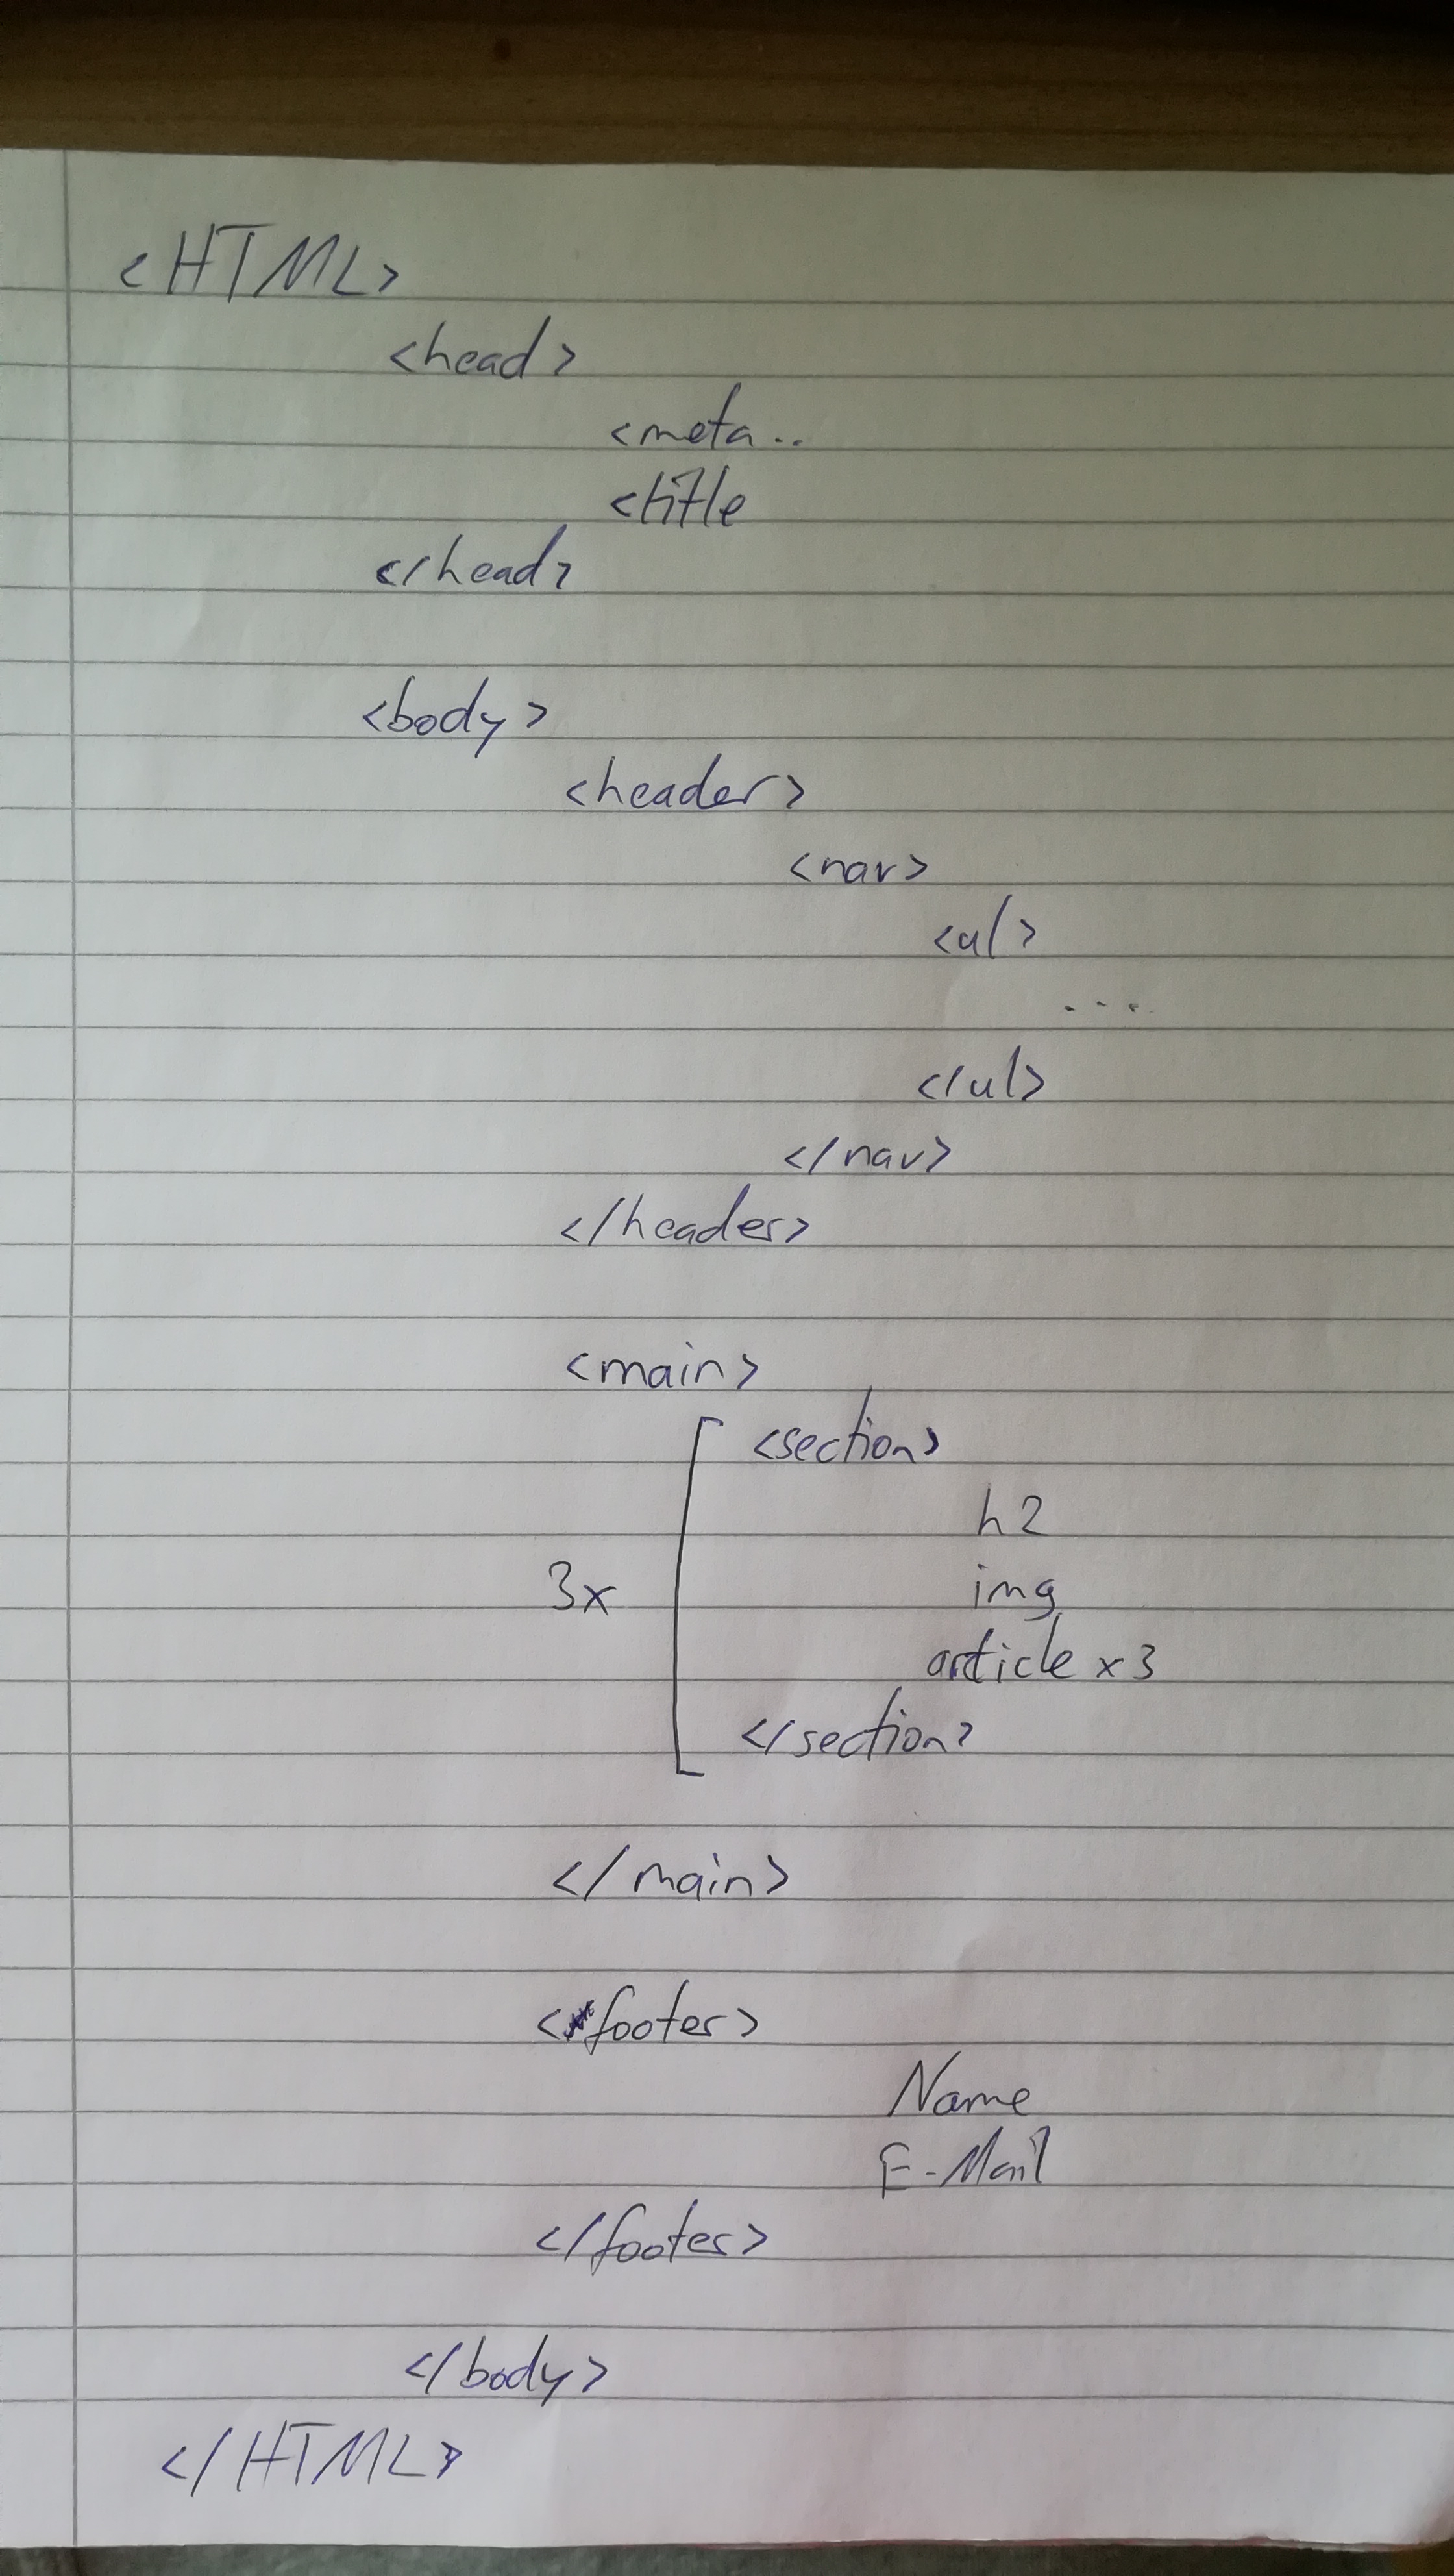 <HTML>
<head>
<meta..
<title
</head>
<body>
<header>
<nav>
<ul>
...
</ul>
</nav>
</header>
<main>
<section>
h2
3x img
article x3
</section>
</main>
<footer>
Name
E-Mail
</footer>
</body>
</HTML>